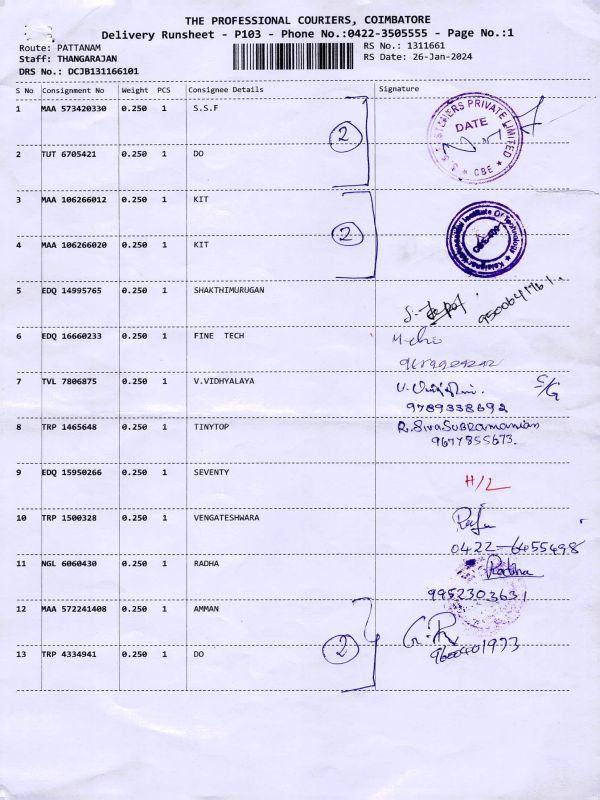 THE PROFESSIONAL COURIERS, COIMBATORE
Delivery Runsheet - P103 - Phone No.:0422-3505555 - Page No.:1
Route: PATTANAM RS No.: 1311661
Staff: THANGARAJAN RS Date: 26-Jan-2024
DRS No.: DCJB131166101
S No Consignment No Weight PCS Consignee Details Signature
1 MAA 573420330 0.250 1 S.S.F
2
STENERS PRIVATE LIMITED
DATE
CBE
2 TUT 6705421 0.250 1 DO
3 MAA 106266012 0.250 1 KIT
2
Institute Of Technology
4 MAA 106266020 0.250 1 KIT
5 EDQ 14995765 0.250 1 SHAKTHIMURUGAN
6 EDQ 16660233 0.250 1 FINE TECH
7 TVL 7806875 0.250 1 V.VIDHYALAYA
9789338692
8 TRP 1465648 0.250 1 TINYTOP R.SivaSubramanian
9677855673.
9 EDQ 15950266 0.250 1 SEVENTY H/L
10 TRP 1500328 0.250 1 VENGATESHWARA Raja
0422-6455498
11 NGL 6060430 0.250 1 RADHA Radha
9952303631
12 MAA 572241408 0.250 1 AMMAN G.R
13 TRP 4334941 0.250 1 DO 2